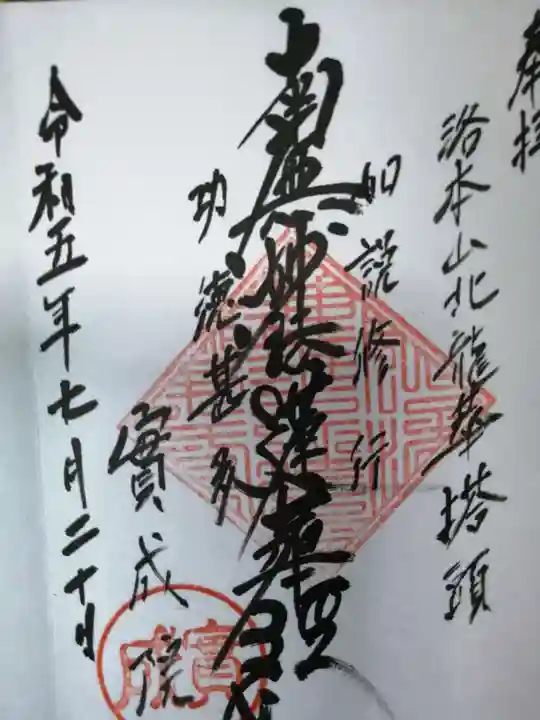 奉拝
洛本山北龍華塔頭
如説修行
南無妙法蓮華経
功徳甚多
實成院
令和五年七月二十日